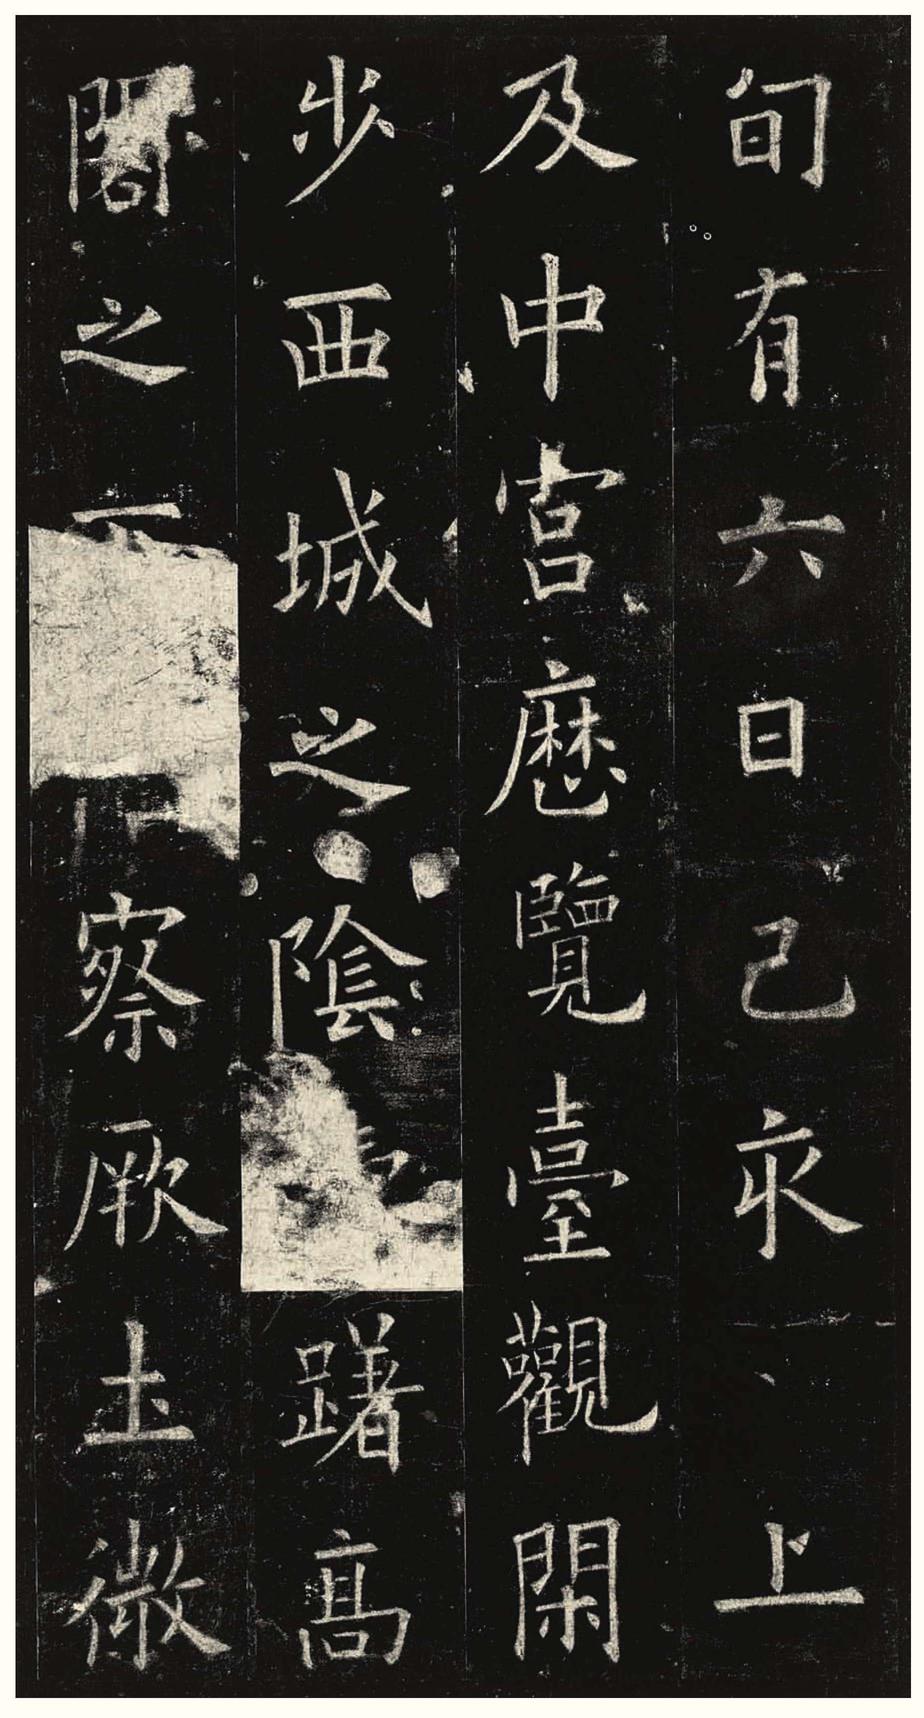 旬有六日己亥上
及中宮歷覽臺觀閑
步西城之陰躇高
閣之下察厥土微